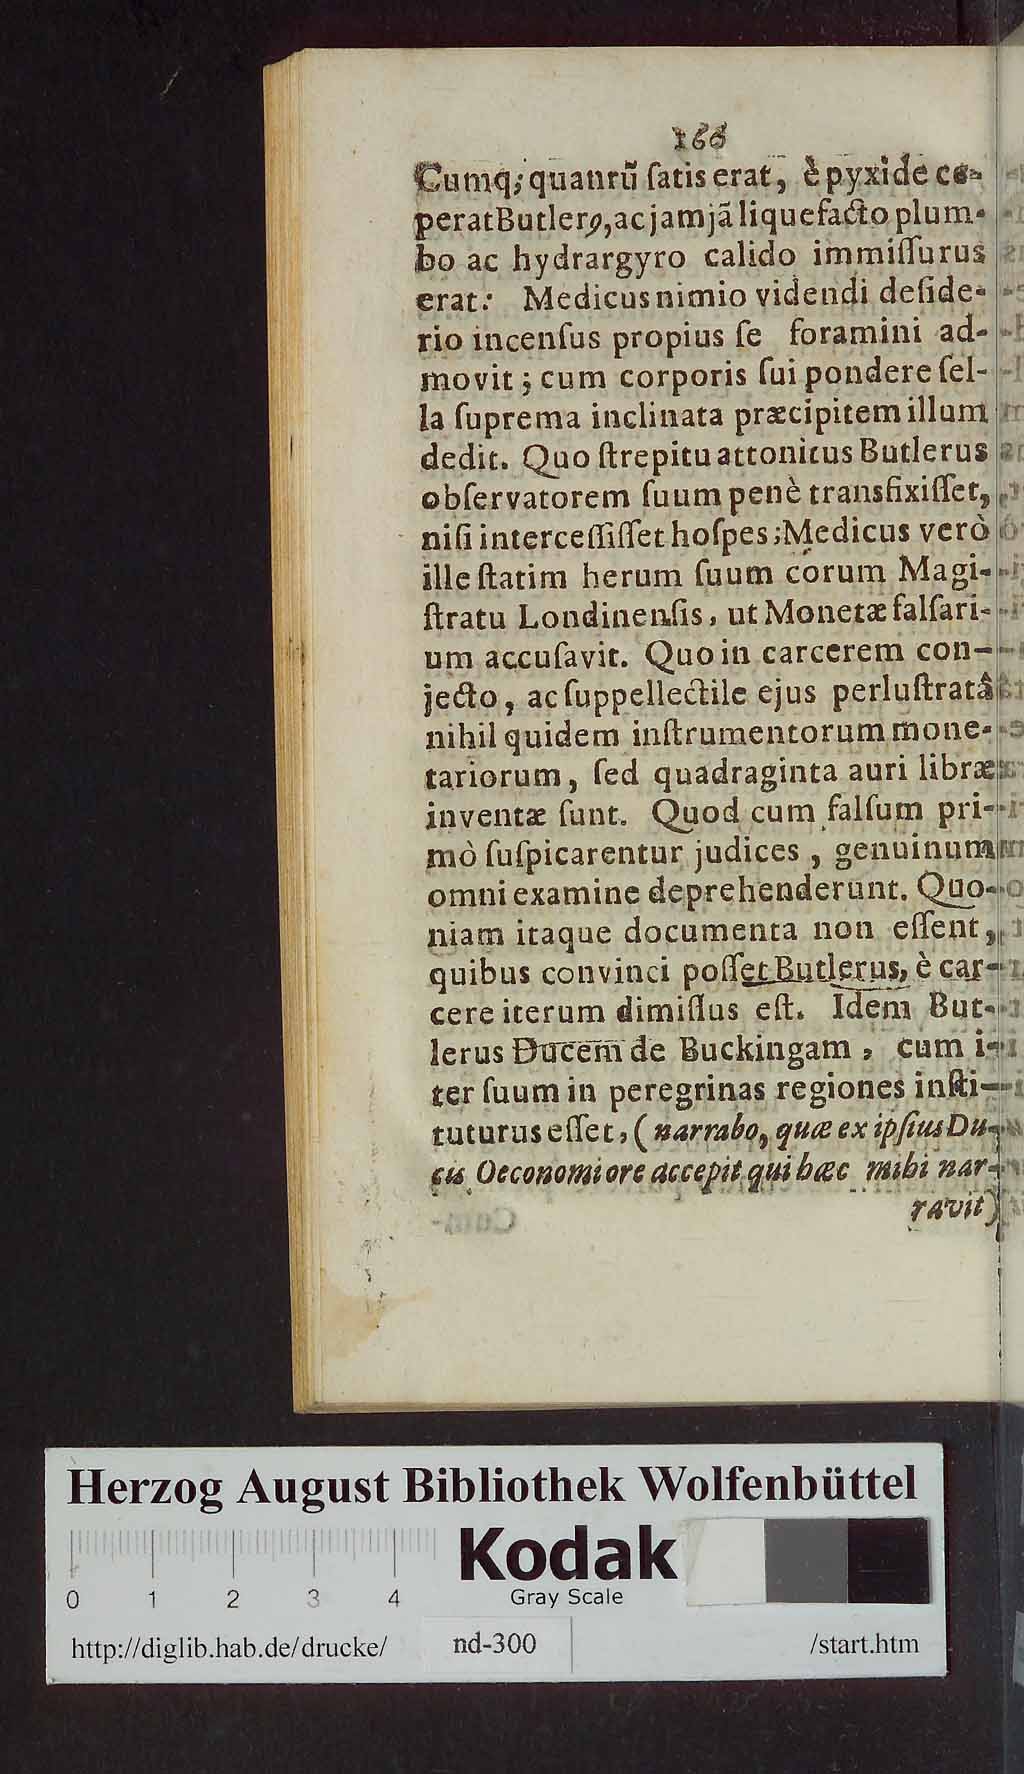 166
Cumq; quantũ ſatis erat, è pyxide ce-
perat Butlerꝰ, ac jamjã liquefacto plum-
bo ac hydrargyro calido immiſſurus
erat: Medicus nimio videndi deſide-
rio incenſus propius ſe foramini ad-
movit; cum corporis ſui pondere ſel-
la ſuprema inclinata præcipitem illum
dedit. Quo ſtrepitu attonitus Butlerus
obſervatorem ſuum penè transfixiſſet,
niſi interceſſiſſet hoſpes; Medicus verò
ille ſtatim herum ſuum corum Magi-
ſtratu Londinenſis, ut Monetæ falſari-
um accuſavit. Quo in carcerem con-
jecto, ac ſuppellectile ejus perluſtratâ
nihil quidem inſtrumentorum mone-
tariorum, ſed quadraginta auri libræ
inventæ ſunt. Quod cum falſum pri-
mò ſuſpicarentur judices, genuinum
omni examine deprehenderunt. Quo-
niam itaque documenta non eſſent,
quibus convinci poſſet Butlerus, è car-
cere iterum dimiſſus eſt. Idem But-
lerus Ducem de Buckingam, cum i-
ter ſuum in peregrinas regiones inſti-
tuturus eſſet, (narrabo, quæ ex ipſius Du-
cis Oeconomi ore accepit qui hæc mihi nar-
ravit)
Herzog August Bibliothek Wolfenbüttel
Kodak
Gray Scale
0 1 2 3 4
http://diglib.hab.de/drucke/ nd-300 /start.htm